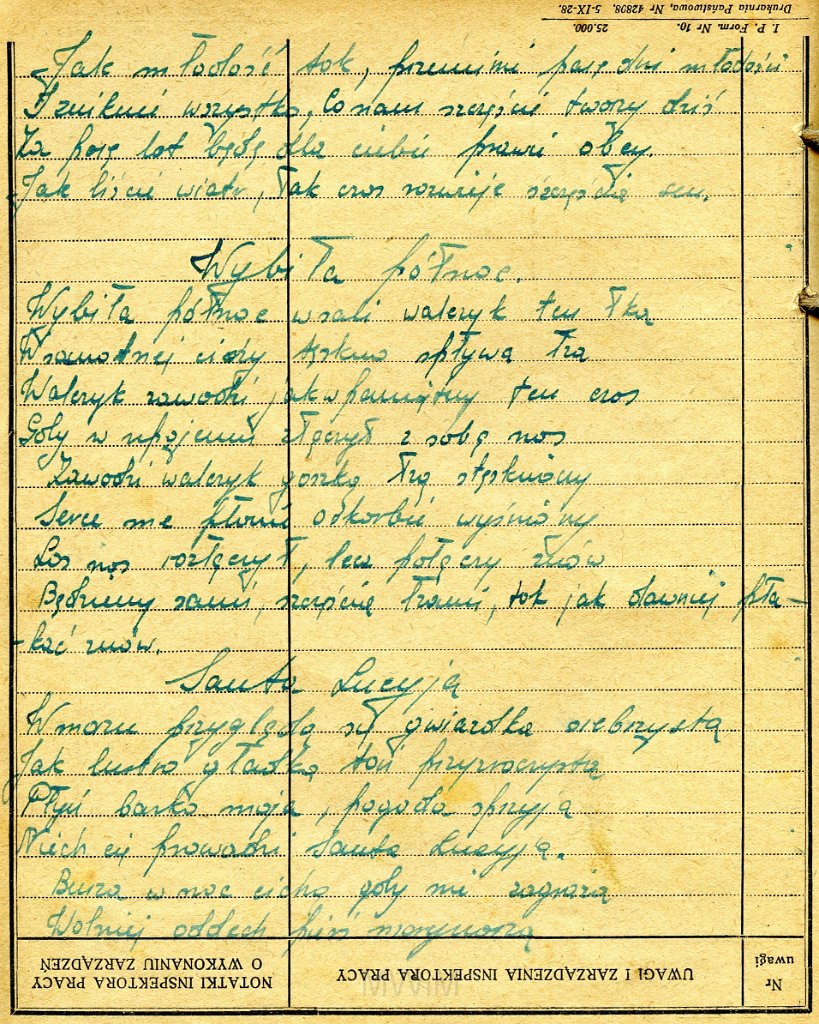 I. P. Form. Nr 10. 25.000.
Drukarnia Państwowa, Nr 42808. 5-IX-28.
Jak młodość tok, przeminie parę dni młodości
I zniknie wszystko, co nam szczęście tworzy dziś
Za parę lat będę dla ciebie prawie obcy.
Jak liście wiatr, tak czas rozwieje szczęścia sen.
Wybiła północ.
Wybiła północ w sali walczyk ten łka
W samotnej ciszy tęskno spływa łza
Walczyk zawodzi jak w pamiętny ten czas
Gdy w upojeniu złączył z sobą nas
Zawodzi walczyk gorzką łzą stęskniony
Serce me płonie
Los nas rozłączył, lecz połączy znów
Będziemy sami, szczęścia łzami, tak jak dawniej pła-
-kać znów.
Santa Lucyja
W morzu przygląda się gwiazdka srebrzysta
Jak lustro gładka toń przyzroczysta
Płyń barko moja, pogoda sprzyja
Niech cię prowadzi Santa Lucyja.
Burza w noc cichą gdy nie zagraża
Wolniej oddech pierś marynarza
NOTATKI INSPEKTORA PRACY O WYKONANIU ZARZĄDZEŃ
UWAGI I ZARZĄDZENIA INSPEKTORA PRACY
Nr uwagi